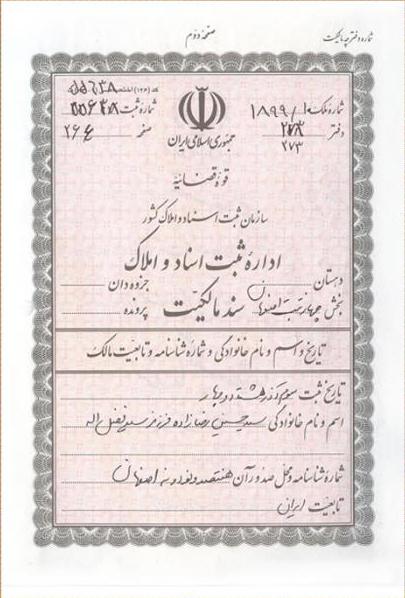 شماره دفترچه مالکیت
صفحه دوم
شماره ملک ۱۸۹۹/۱
دفتر ۲۷۳
۲۷۳
شماره ثبت
صفحه ۲۶۴
جمهوری اسلامی ایران
قوه قضائیه
سازمان ثبت اسناد و املاک کشور
اداره ثبت اسناد و املاک
دهستان
جزوه‌دان
بخش چهار ثبت اصفهان
سند مالکیت
پرونده
تاریخ و اسم و نام خانوادگی و شماره شناسنامه و تابعیت مالک
تاریخ ثبت سوم آذر هشتاد و چهار
اسم و نام خانوادگی سید حسین رضازاده فرزند سید فضل اله
شماره شناسنامه و محل صدور آن هفتصد و نود و سه اصفهان
تابعیت ایران